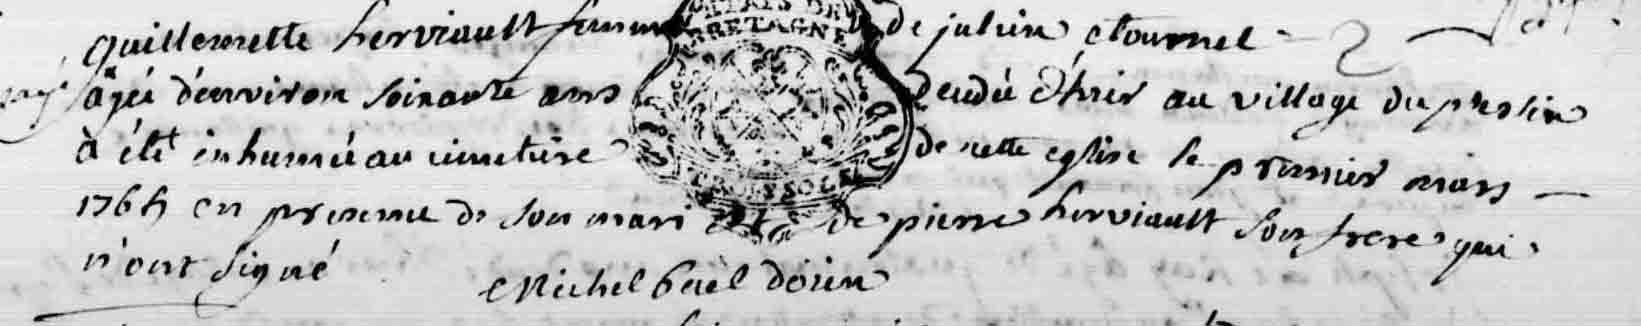 guillemette herviault femme de julien tournel
agée d'environ soixante ans decedé d'hier au village du preslin
a été inhumé au cimetiere de cette eglise le premier mars
1764 en presence de son mari et de pierre herviault son frere qui
n'ont signé Michel
BRETAGNE